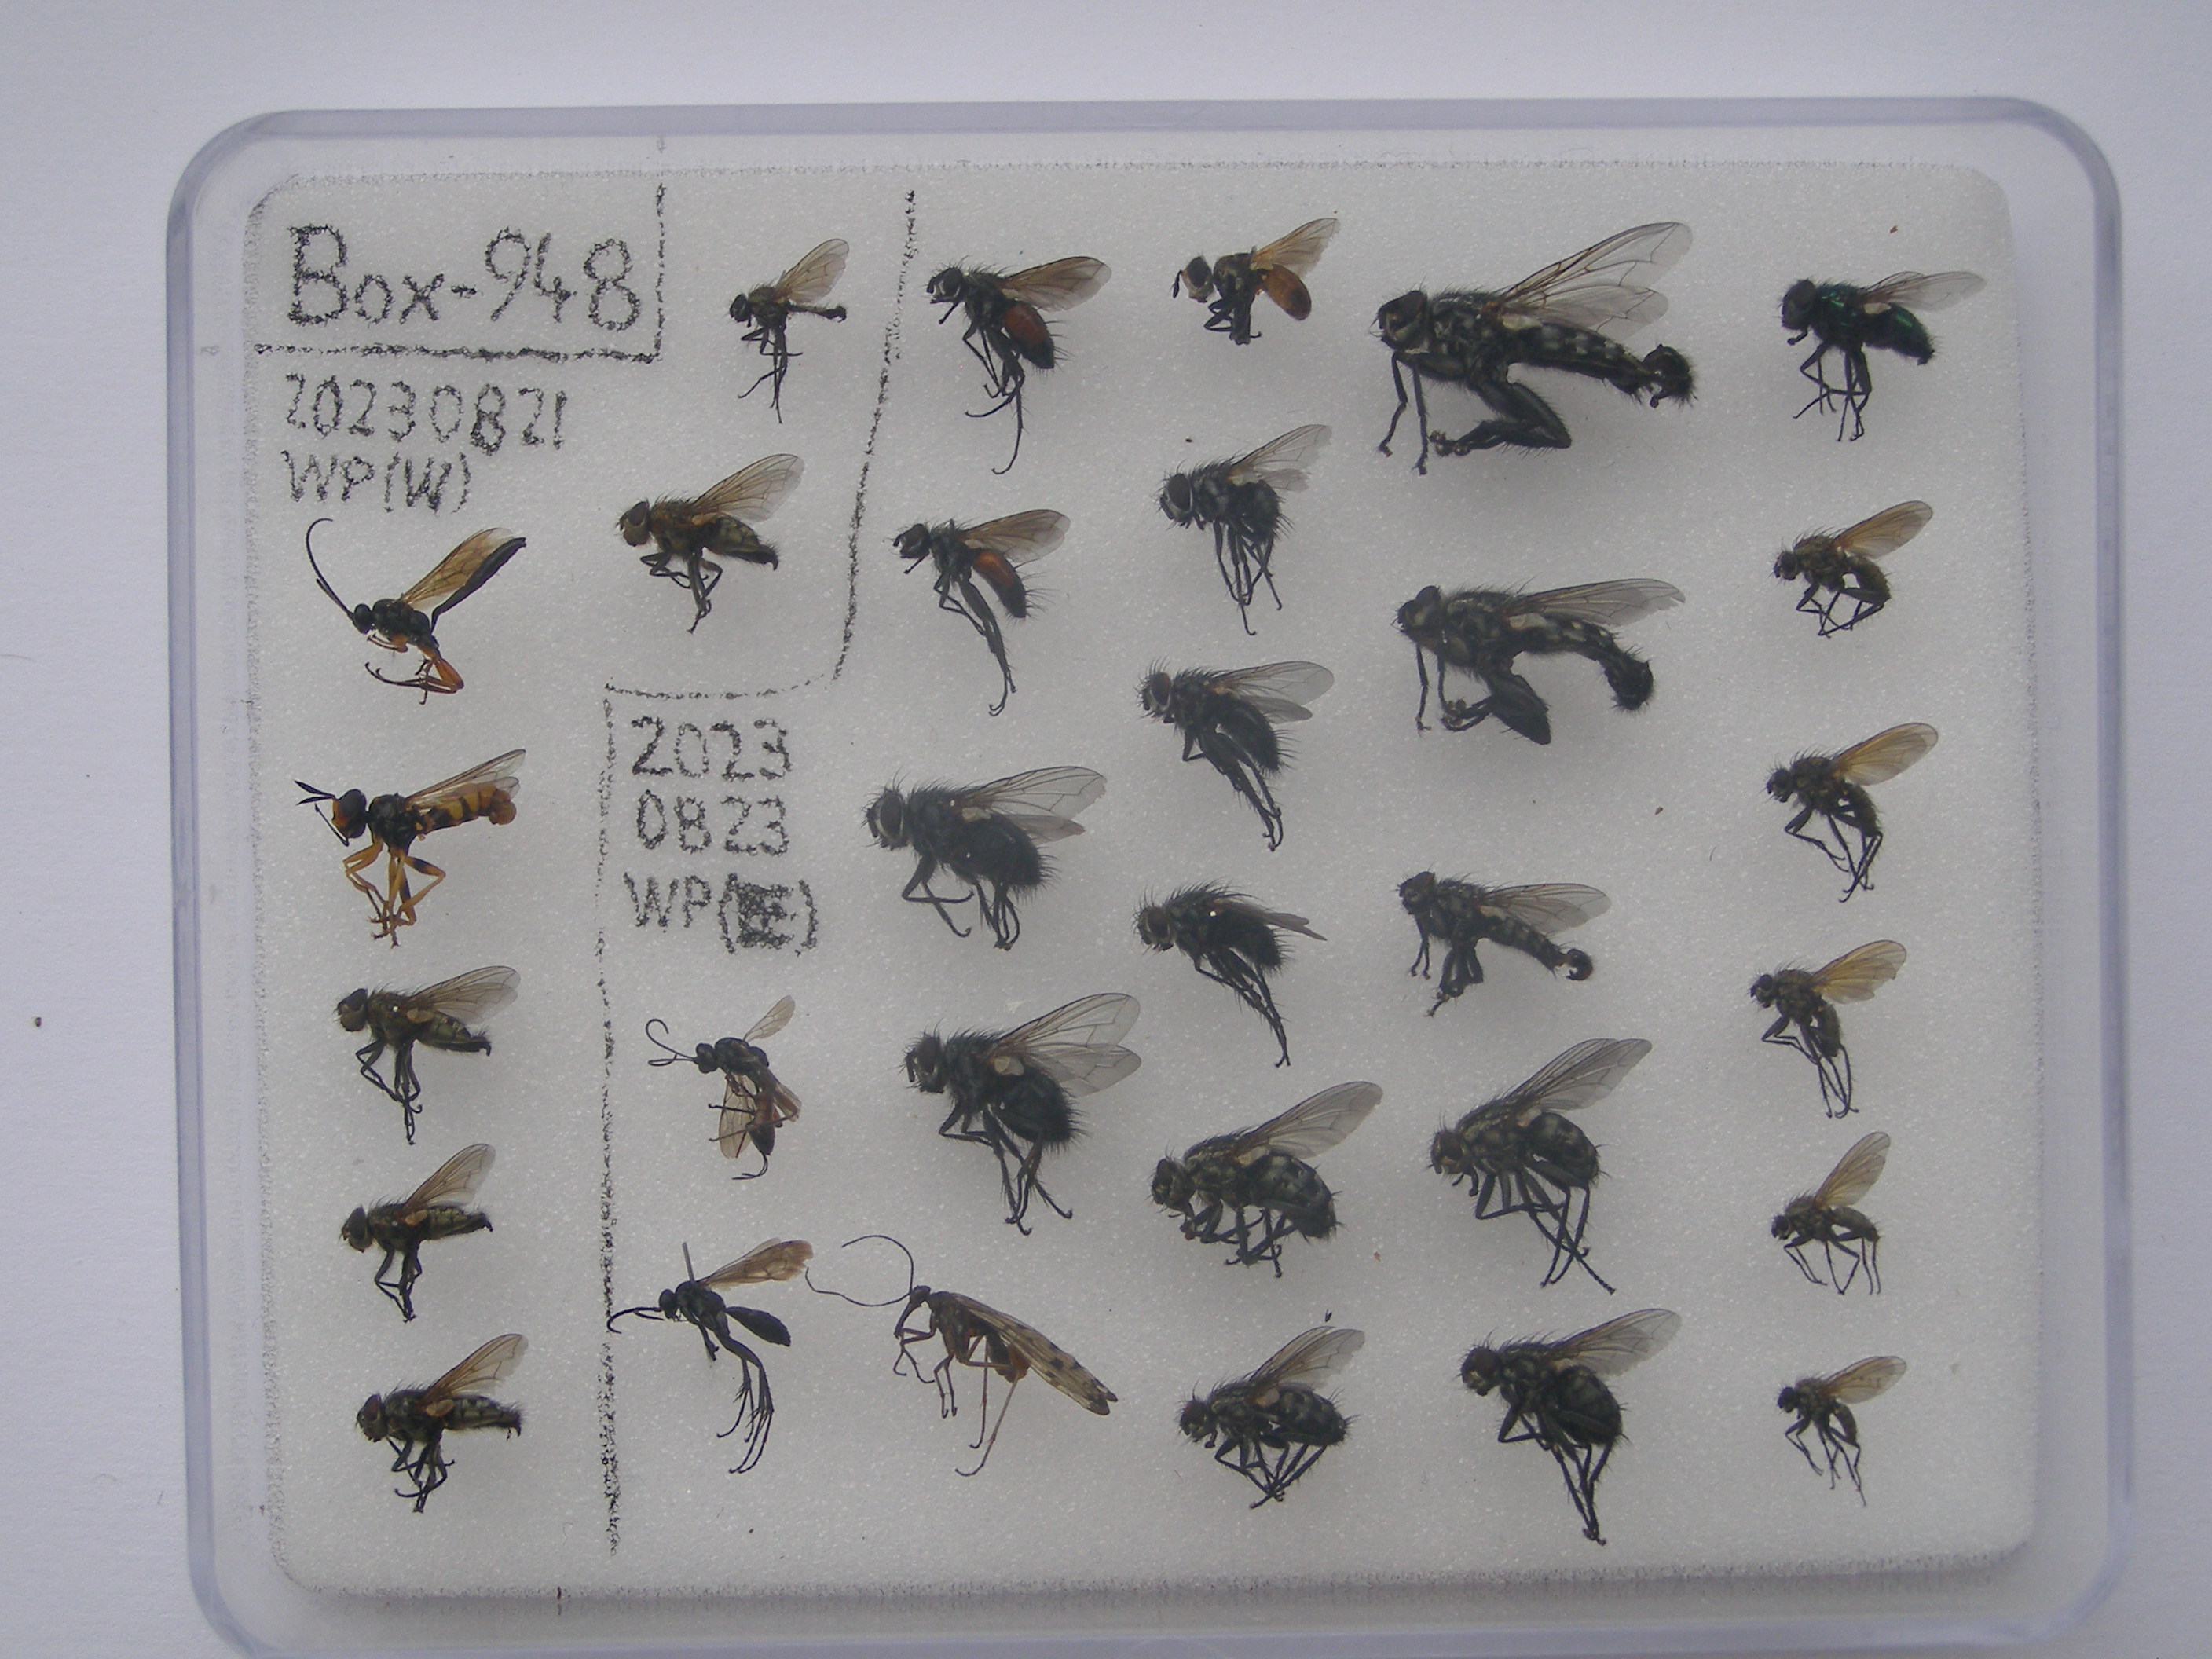 Box-948
20230821
WP(W)
2023
0823
WP(E)